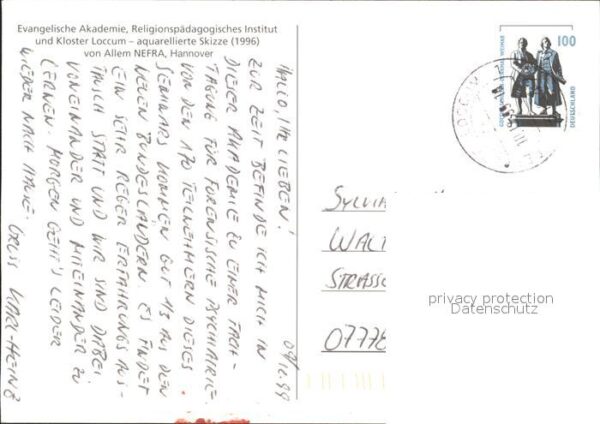 Evangelische Akademie, Religionspädagogisches Institut
und Kloster Loccum – aquarellierte Skizze (1996)
von Allem NEFRA, Hannover
09/10.99
HALLO, IHR LIEBEN!
ZUR ZEIT BEFINDE ICH MICH IN
DIESER AKADEMIE ZU EINER FACH-
TAGUNG FÜR FORENSISCHE PSYCHIATRIE.
VON DEN 170 TEILNEHMERN DIESES
SEMINARS KOMMEN GUT 1/3 AUS DEN
NEUEN BUNDESLÄNDERN. ES FINDET
EIN SEHR REGER ERFAHRUNGSAUS-
TAUSCH STATT UND WIR SIND DABEI
VONEINANDER UND MITEINANDER ZU
LERNEN. MORGEN GEHT'S LEIDER
WIEDER NACH HAUSE. GRUSS KARL-HEINZ
100
DEUTSCHLAND
LOCCUM
SYLVIA
WALT
STRASSE
07778
privacy protection
Datenschutz